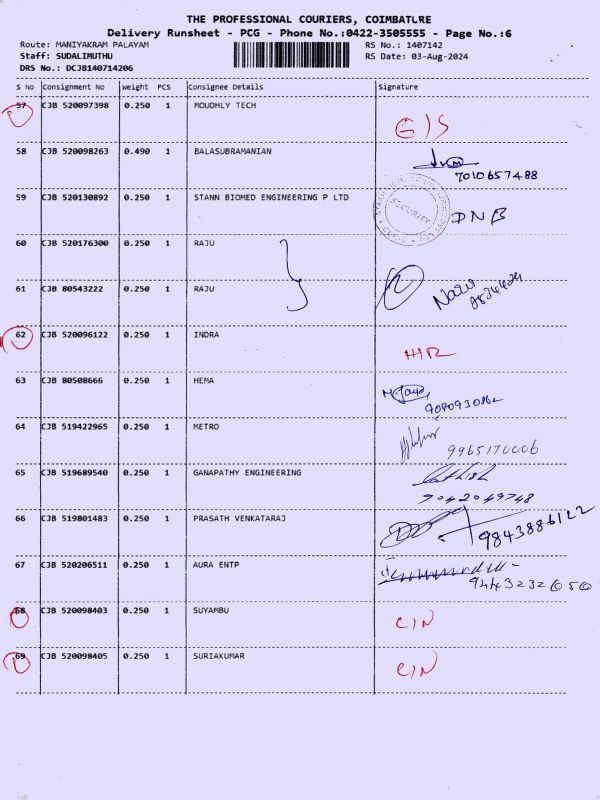 THE PROFESSIONAL COURIERS, COIMBATORE
Delivery Runsheet - PCG - Phone No.:0422-3505555 - Page No.:6
Route: MANIYAKRAM PALAYAM RS No.: 1407142
Staff: SUDALIMUTHU RS Date: 03-Aug-2024
DRS No.: DCJB140714206
S No Consignment No Weight PCS Consignee Details Signature
57 CJB 520097398 0.250 1 MOUDHLY TECH
58 CJB 520098263 0.490 1 BALASUBRAMANIAN
7010657488
59 CJB 520130892 0.250 1 STANN BIOMED ENGINEERING P LTD SECURITY DNB
60 CJB 520176300 0.250 1 RAJU
61 CJB 80543222 0.250 1 RAJU
62 CJB 520096122 0.250 1 INDRA
63 CJB 80508666 0.250 1 HEMA
64 CJB 519422965 0.250 1 METRO
65 CJB 519689540 0.250 1 GANAPATHY ENGINEERING
66 CJB 519801483 0.250 1 PRASATH VENKATARAJ
9843886122
67 CJB 520206511 0.250 1 AURA ENTP
9443232050
68 CJB 520098403 0.250 1 SUYAMBU C/N
69 CJB 520098405 0.250 1 SURIAKUMAR C/N